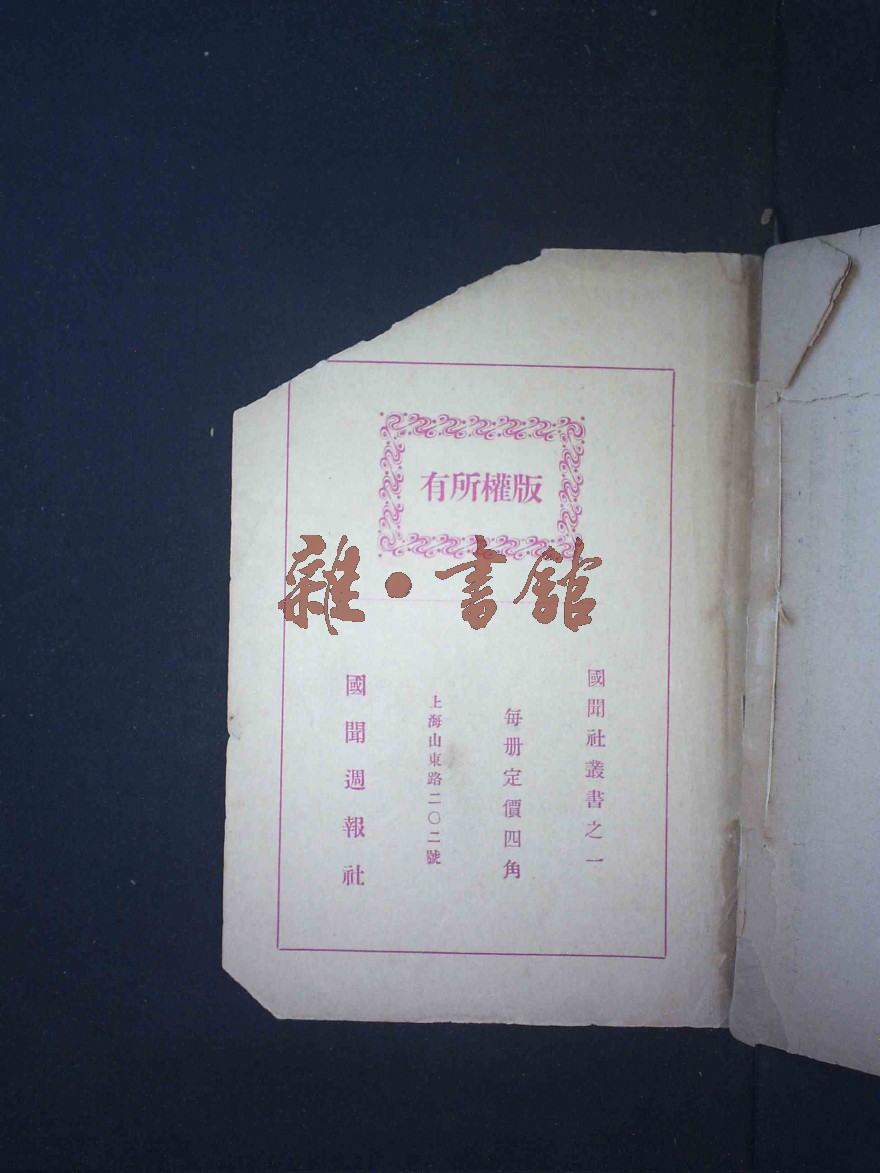 版權所有
雜·書館
國聞社叢書之一
每册定價四角
上海山東路二〇二號
國聞週報社